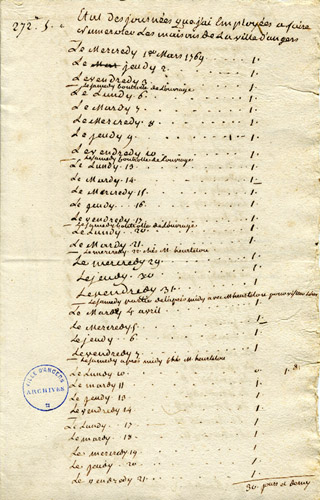 272. 5.
Etat des journées que j'ai Employées a faire
Numeroter Les maisons de La ville d'angers
Le Mercredy 1er Mars 1769 1.
Le jeudy 2 1.
Le vendredy 3 1.
Le samedy de Louvrage
Le Lundy 6 1.
Le Mardy 7 1.
Le Mercredy 8 1.
Le jeudy 9 1.
Le vendredy 10 1.
Le samedy de Louvrage
Le Lundy 13 1.
Le Mardy 14 1.
Le Mercredy 15 1.
Le jeudy 16 1.
Le vendredy 17 1.
Le samedy de Louvrage
Le Lundy 20 1.
Le Mardy 21 1.
Le mercredy 22 M.
Le mercredy 29 1.
Le jeudy 30 1.
Le vendredy 31 1.
Le samedy midy avec M
Le Mardy 4 avril 1.
Le Mercredy 5 1.
Le jeudy 6 1.
Le vendredy 7 1.
Le samedy apres midy
Le Lundy 10
Le mardy 11 1.
Le jeudy 13 1.
Le vendredy 14 1.
Le Lundy 17 1.
Le mardy 18 1.
Le mercredy 19 1.
Le jeudy 20 1.
Le vendredy 21 1.
30 jours et demy
VILLE D'ANGERS
ARCHIVES